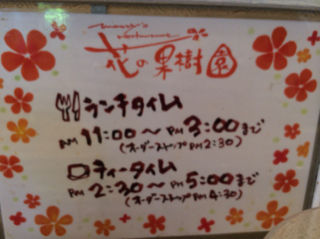 花の果樹園
ランチタイム
AM 11:00〜PM 3:00まで
(オーダーストップ PM 2:30)
ティータイム
PM 2:30〜PM 5:00まで
(オーダーストップ PM 4:30)